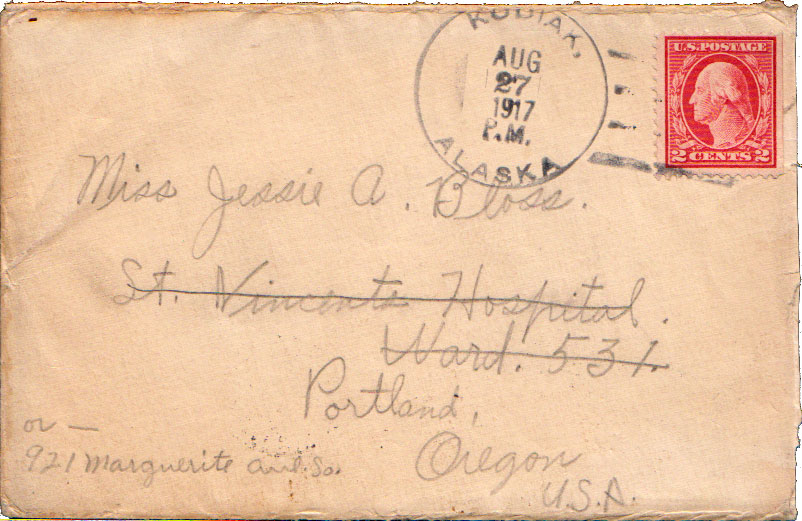 KODIAK,
AUG
27
1917
P.M.
ALASKA
U.S. POSTAGE
2 CENTS 2
Miss Jessie A. Bloss.
St. Vincents Hospital.
Ward. 531.
Portland,
Oregon
U.S.A.
or —
921 Marguerite Ave. So.